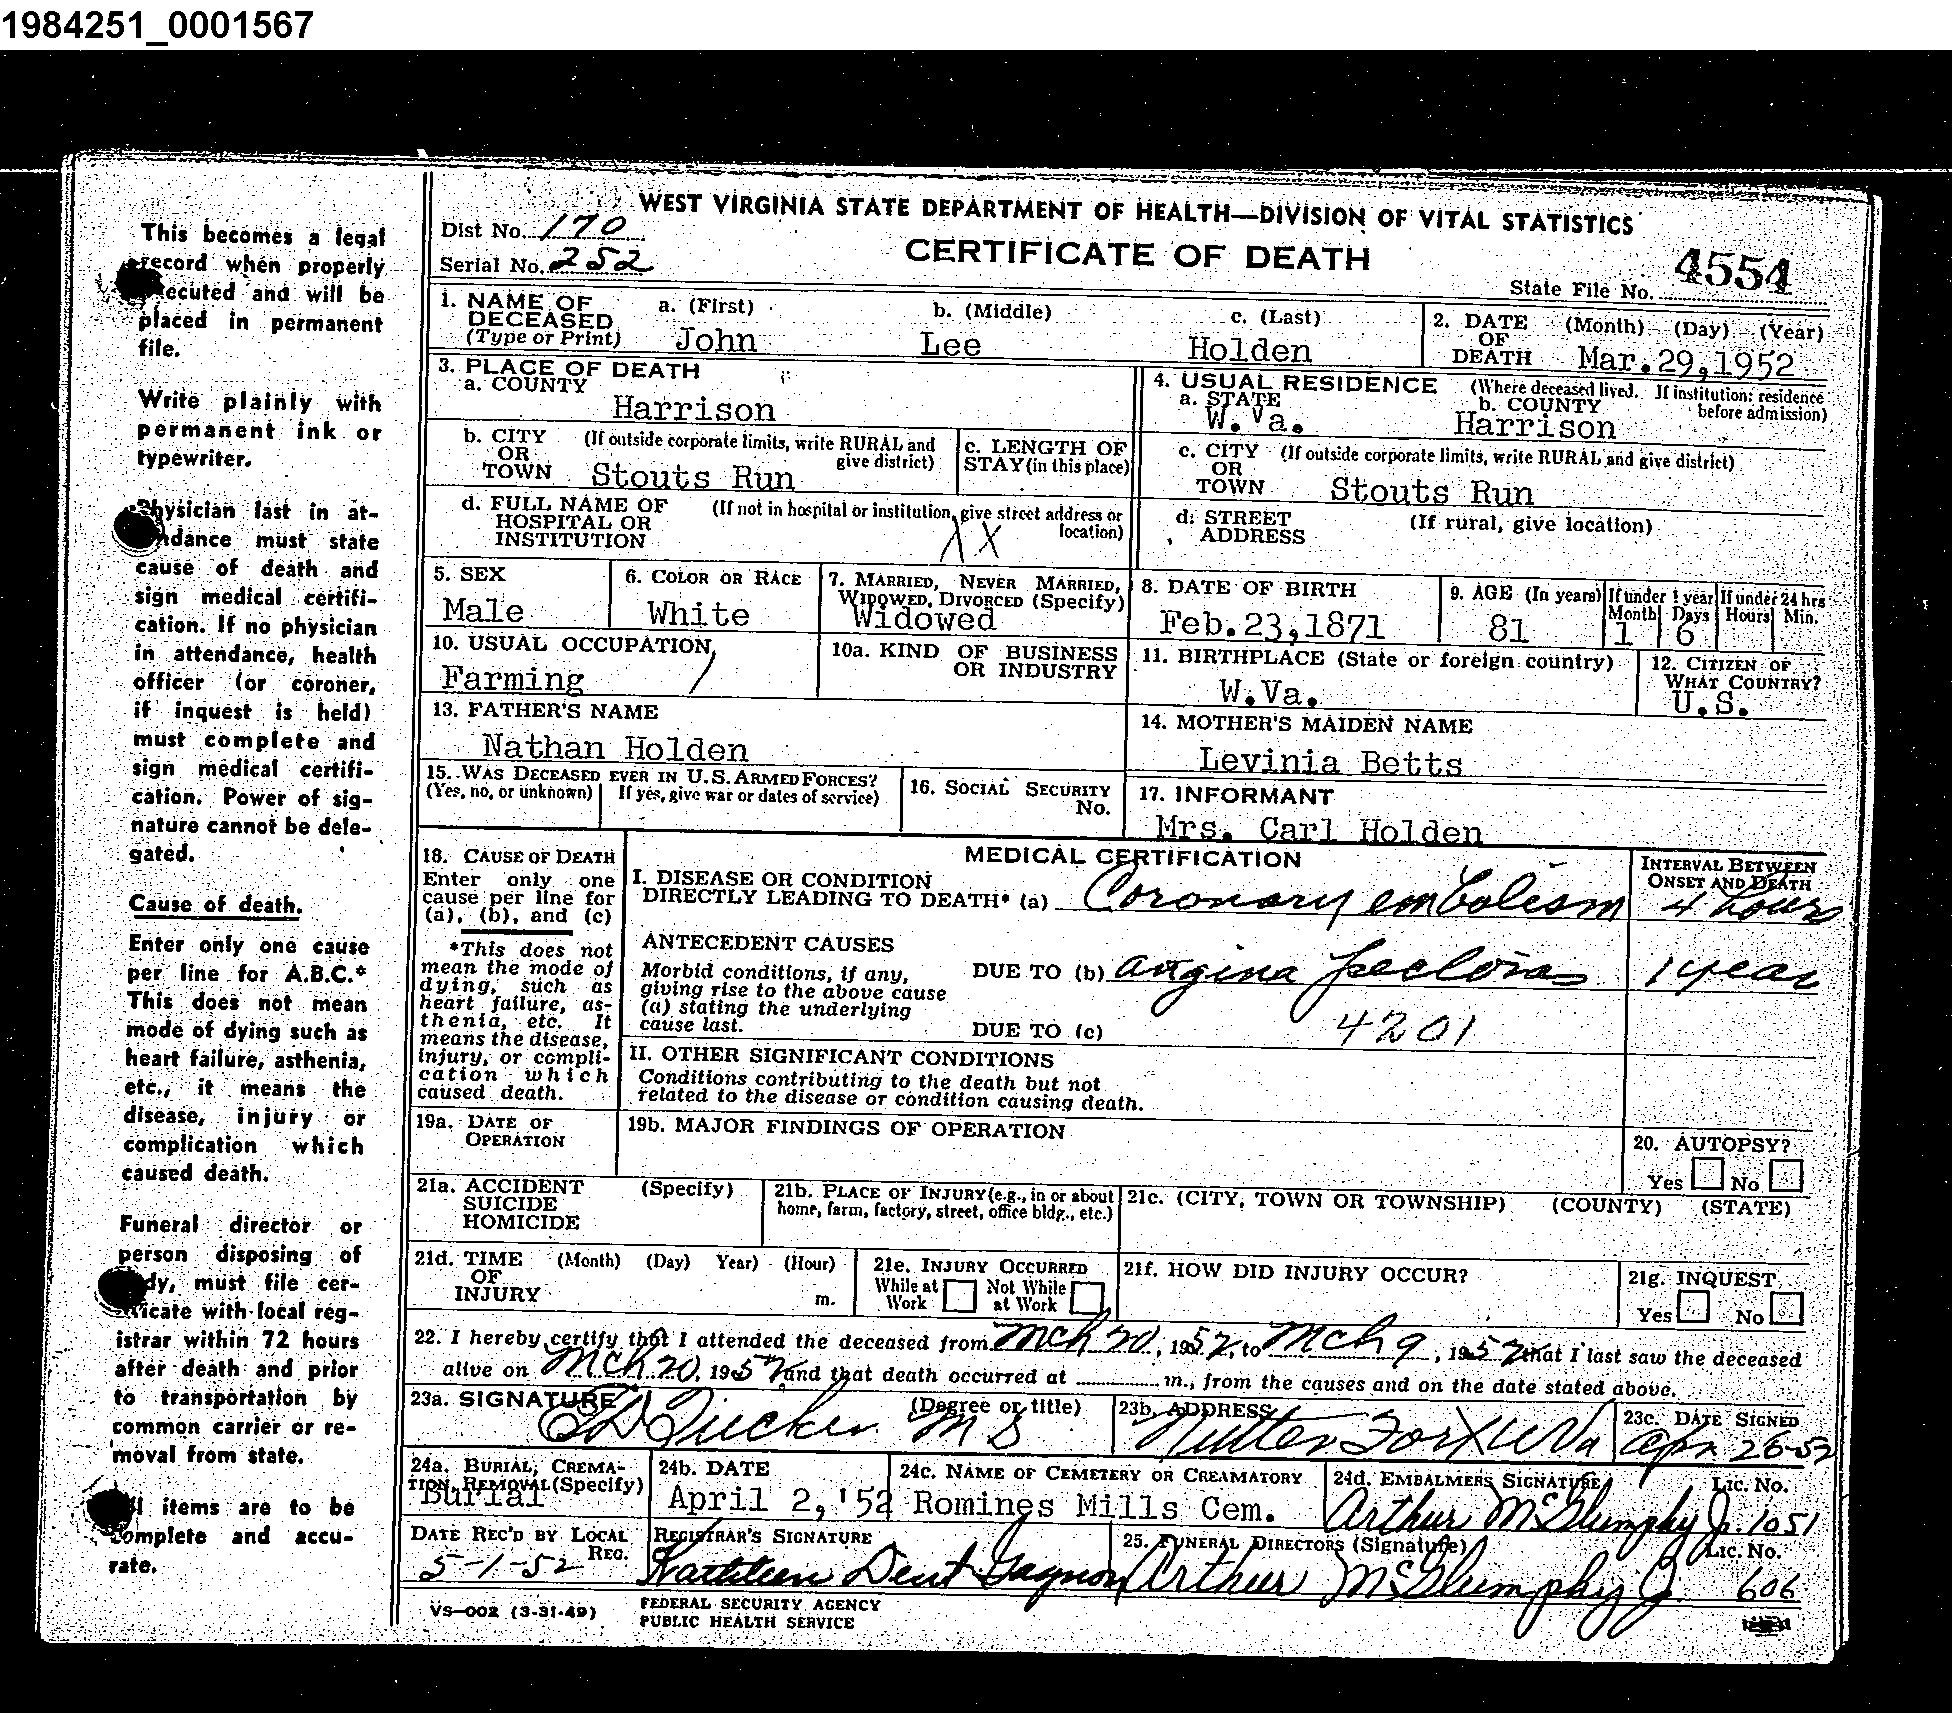 1984251_0001567
This becomes a legal
record when properly
ecuted and will be
placed in permanent
file.
Write plainly with
permanent ink or
typewriter.
Physician last in at-
ndance must state
cause of death and
sign medical certifi-
cation. If no physician
in attendance, health
officer (or coroner,
if inquest is held)
must complete and
sign medical certifi-
cation. Power of sig-
nature cannot be dele-
gated.
Cause of death.
Enter only one cause
per line for A.B.C.*
This does not mean
mode of dying such as
heart failure, asthenia,
etc., it means the
disease, injury or
complication which
caused death.
Funeral director or
person disposing of
dy, must file cer-
ificate with local reg-
istrar within 72 hours
after death and prior
to transportation by
common carrier or re-
moval from state.
l items are to be
omplete and accu-
rate.
WEST VIRGINIA STATE DEPARTMENT OF HEALTH—DIVISION OF VITAL STATISTICS
Dist No. 170
CERTIFICATE OF DEATH
Serial No. 252
State File No. 4554
1. NAME OF DECEASED (Type or Print)
a. (First) John
b. (Middle) Lee
c. (Last) Holden
2. DATE OF DEATH (Month) (Day) (Year) Mar.29,1952
3. PLACE OF DEATH
a. COUNTY Harrison
4. USUAL RESIDENCE (Where deceased lived. If institution: residence before admission)
a. STATE W.Va.
b. COUNTY Harrison
b. CITY OR TOWN (If outside corporate limits, write RURAL and give district) Stouts Run
c. LENGTH OF STAY (in this place)
c. CITY OR TOWN (If outside corporate limits, write RURAL and give district) Stouts Run
d. FULL NAME OF HOSPITAL OR INSTITUTION (If not in hospital or institution, give street address or location) XX
d. STREET ADDRESS (If rural, give location)
5. SEX Male
6. COLOR OR RACE White
7. MARRIED, NEVER MARRIED, WIDOWED, DIVORCED (Specify) Widowed
8. DATE OF BIRTH Feb.23,1871
9. AGE (In years) 81
If under 1 year Month 1 Days 6
If under 24 hrs Hours Min.
10. USUAL OCCUPATION Farming /
10a. KIND OF BUSINESS OR INDUSTRY
11. BIRTHPLACE (State or foreign country) W.Va.
12. CITIZEN OF WHAT COUNTRY? U.S.
13. FATHER'S NAME Nathan Holden
14. MOTHER'S MAIDEN NAME Levinia Betts
15. WAS DECEASED EVER IN U.S. ARMED FORCES?
(Yes, no, or unknown) If yes, give war or dates of service)
16. SOCIAL SECURITY No.
17. INFORMANT Mrs. Carl Holden
18. CAUSE OF DEATH
Enter only one
cause per line for
(a), (b), and (c)
*This does not
mean the mode of
dying, such as
heart failure, as-
thenia, etc. It
means the disease,
injury, or compli-
cation which
caused death.
MEDICAL CERTIFICATION
INTERVAL BETWEEN ONSET AND DEATH
I. DISEASE OR CONDITION
DIRECTLY LEADING TO DEATH* (a) Coronary embolism 4 hours
ANTECEDENT CAUSES
Morbid conditions, if any,
giving rise to the above cause
(a) stating the underlying
cause last.
DUE TO (b) angina pectoris 1 year
DUE TO (c) 4201
II. OTHER SIGNIFICANT CONDITIONS
Conditions contributing to the death but not
related to the disease or condition causing death.
19a. DATE OF OPERATION
19b. MAJOR FINDINGS OF OPERATION
20. AUTOPSY?
Yes No
21a. ACCIDENT SUICIDE HOMICIDE (Specify)
21b. PLACE OF INJURY (e.g., in or about home, farm, factory, street, office bldg., etc.)
21c. (CITY, TOWN OR TOWNSHIP) (COUNTY) (STATE)
21d. TIME OF INJURY (Month) (Day) Year) (Hour) m.
21e. INJURY OCCURRED
While at Work Not While at Work
21f. HOW DID INJURY OCCUR?
21g. INQUEST
Yes No
22. I hereby certify that I attended the deceased from Mch 20, 1952, to Mch 9, 1952 that I last saw the deceased
alive on Mch 20, 1952 and that death occurred at m., from the causes and on the date stated above.
23a. SIGNATURE Tucker M D (Degree or title)
23b. ADDRESS Nutter Fort W Va
23c. DATE SIGNED Apr 26-52
24a. BURIAL, CREMATION, REMOVAL (Specify) Burial
24b. DATE April 2,'52
24c. NAME OF CEMETERY OR CREAMATORY Romines Mills Cem.
24d. EMBALMERS SIGNATURE Lic. No. Arthur McGlumphy Jr. 1051
DATE REC'D BY LOCAL REG. 5-1-52
REGISTRAR'S SIGNATURE Kathleen Dent Gagnon
25. FUNERAL DIRECTORS (Signature) Lic. No. Arthur McGlumphy Jr. 606
VS—002 (3-31-49)
FEDERAL SECURITY AGENCY
PUBLIC HEALTH SERVICE